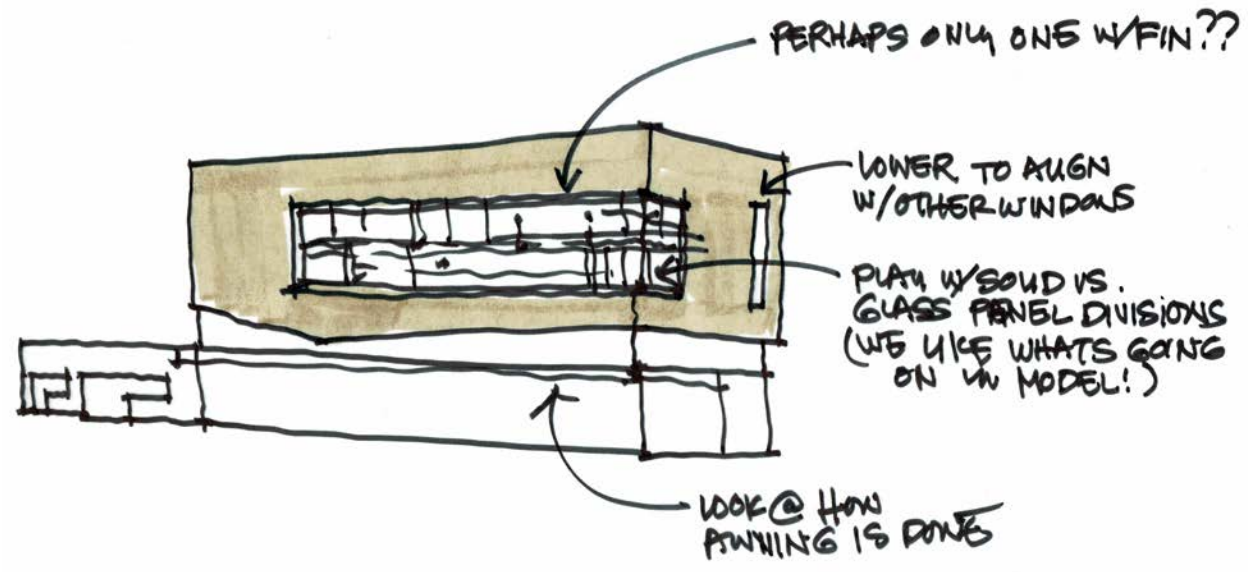 PERHAPS ONLY ONE W/FIN??
LOWER TO ALIGN
W/OTHER WINDOWS
PLAY W/SOLID VS.
GLASS PANEL DIVISIONS
(WE LIKE WHATS GOING
ON IN MODEL!)
LOOK @ HOW
AWNING IS DONE